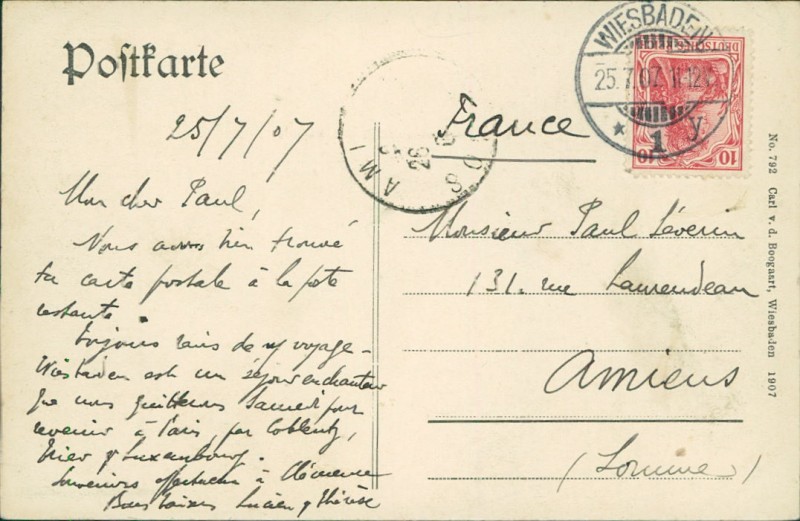 Postkarte
25/7/07
Mon cher Paul,
Nous avons bien trouvé
ta carte postale à la poste
restante.
toujours ravis de voyage -
Wiesbaden est un séjour enchanteur
que nous quitterons Samedi pour
revenir à Paris, par Coblentz,
Trier & Luxembourg.
Souvenirs affectueux à Clémence
Bons baisers Lucien & Thérèse
France
Monsieur Paul Séverin
131. rue Laurendeau
Amiens
(Somme)
WIESBADEN
25.7.07 11-12
* 1 y
DEUTSCHES
10 10
AMI
SO
No. 792 Carl v. d. Boogaart, Wiesbaden 1907